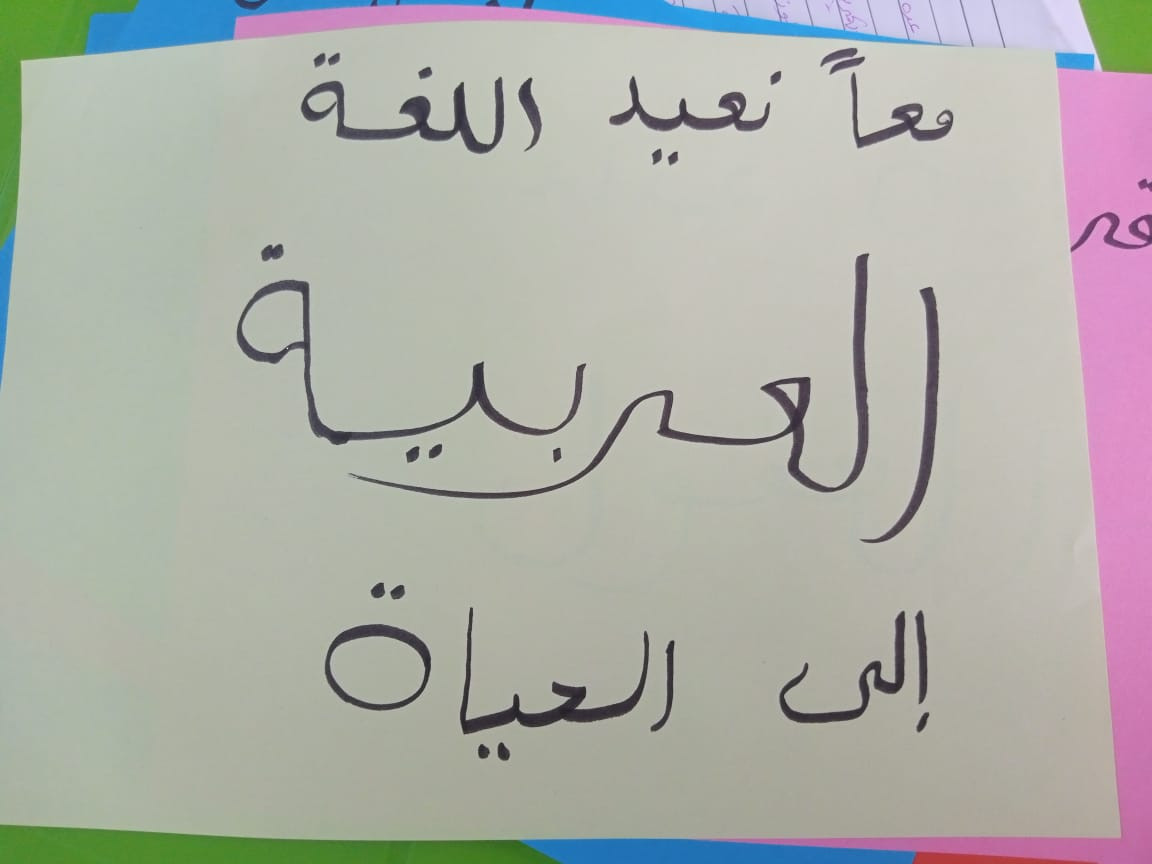 معاً نعيد اللغة
العربية
إلى الحياة